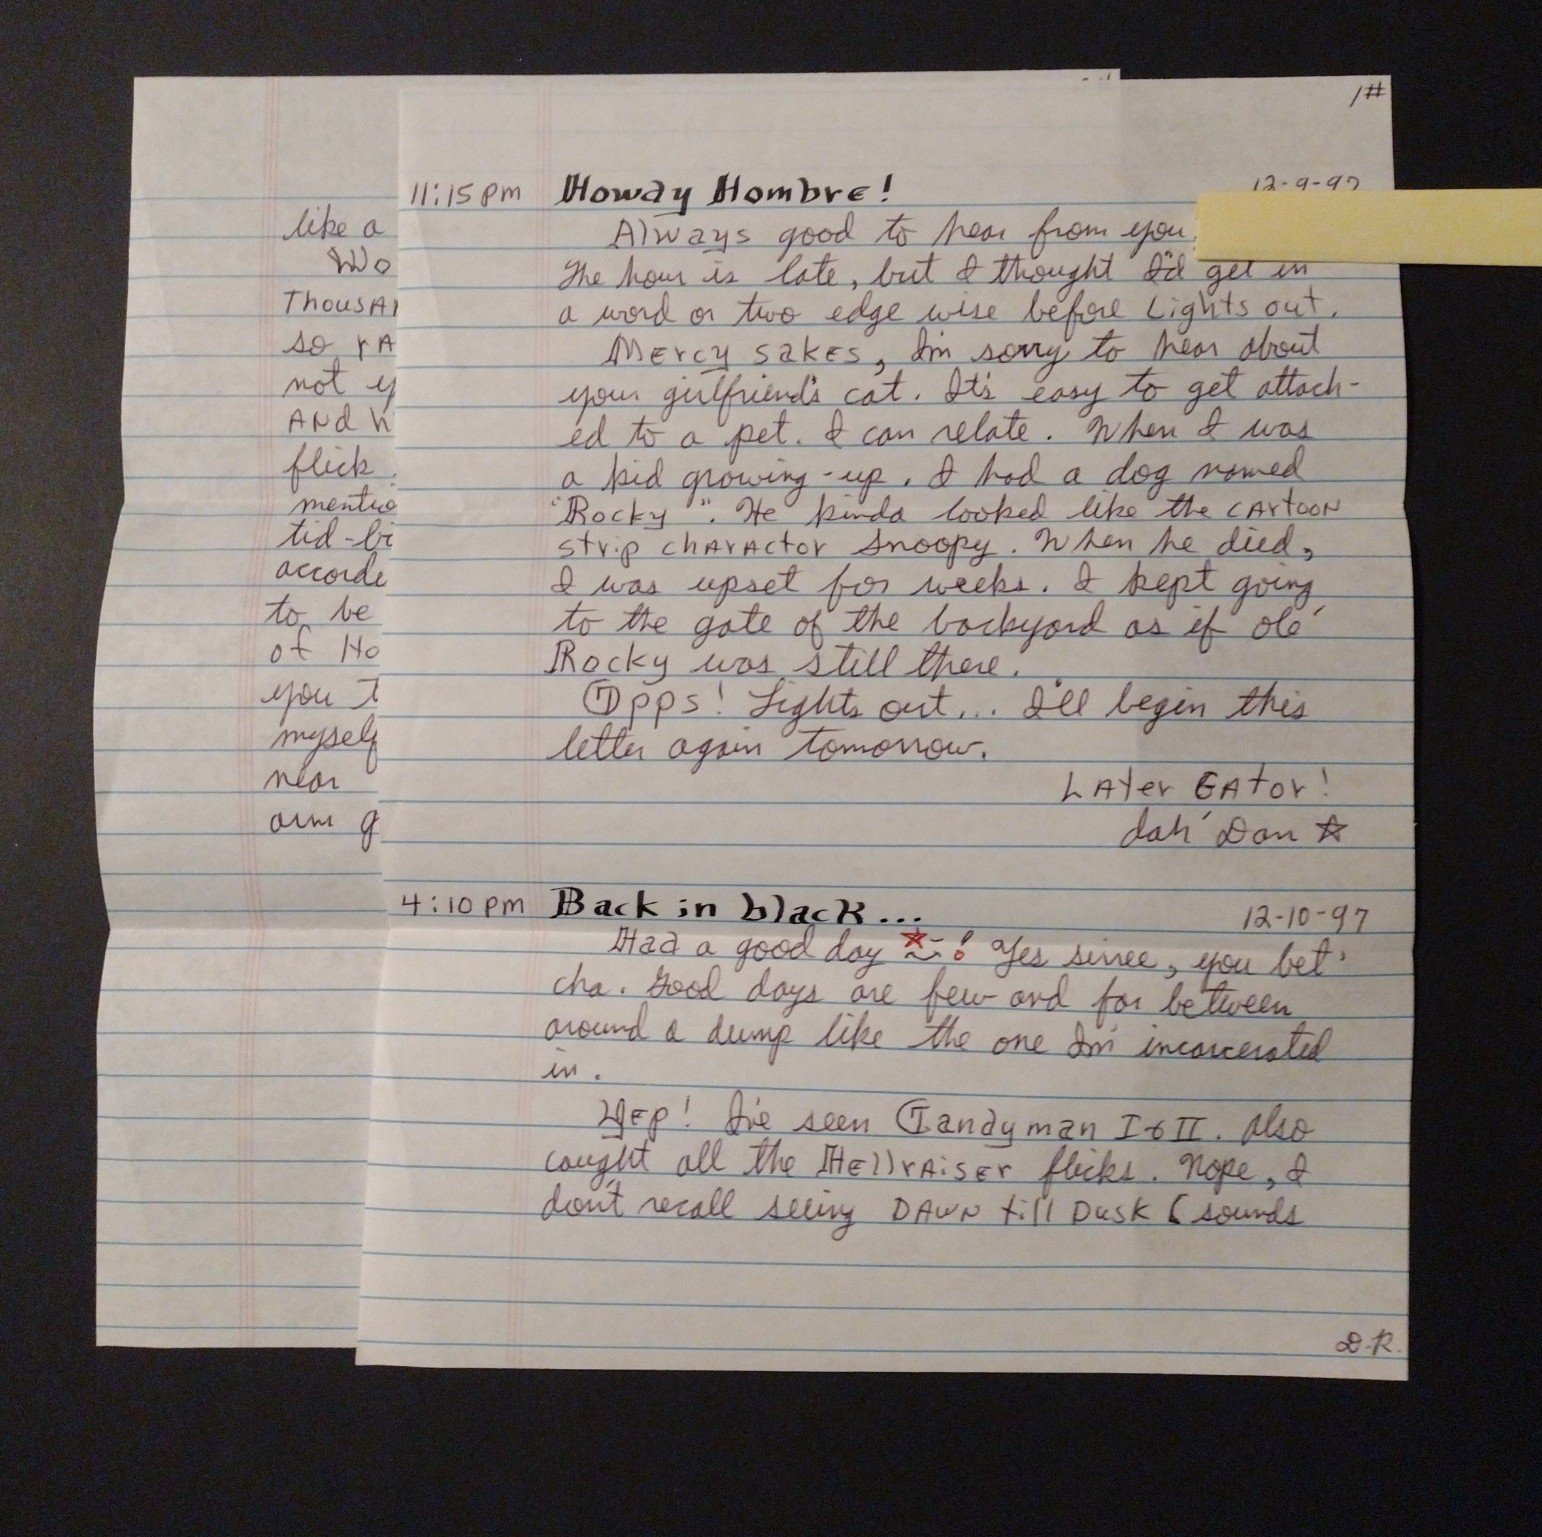 1#
11:15 pm Howdy Hombre! 12-9-97
Always good to hear from you
The hour is late, but I thought I'd get in
a word or two edge wise before Lights out.
Mercy sakes, I'm sorry to hear about
your girlfriend's cat. It's easy to get attach-
ed to a pet. I can relate. When I was
a kid growing-up, I had a dog named
"Rocky". He kinda looked like the cartoon
strip charactor Snoopy. When he died,
I was upset for weeks. I kept going
to the gate of the backyard as if ole'
Rocky was still there.
Opps! Lights out... I'll begin this
letter again tomorrow.
Later Gator!
dah' Dan ☆
4:10 pm Back in black... 12-10-97
Had a good day ! Yes siree, you bet'
cha. Good days are few and far between
around a dump like the one I'm incarcerated
in.
Yep! I've seen Candyman I & II. Also
caught all the Hellraiser flicks. Nope, I
don't recall seeing Dawn till Dusk (sounds
D.R.
like a
Wo
Thousan
so ra
not
And
flick
mentio
tid-bi
accordi
to be
of Ho
you
myself
near
arm g